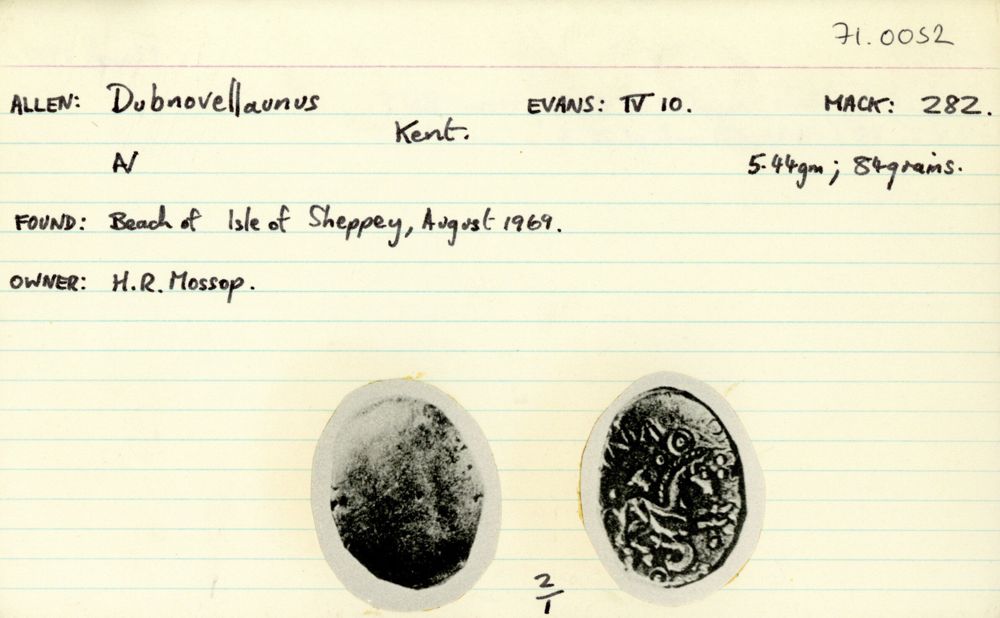 71.0052
ALLEN: Dubnovellaunus EVANS: IV 10. MACK: 282.
Kent.
AV 5.44gm; 84grains.
FOUND: Beach of Isle of Sheppey, August 1969.
OWNER: H.R. Mossop.
2/1